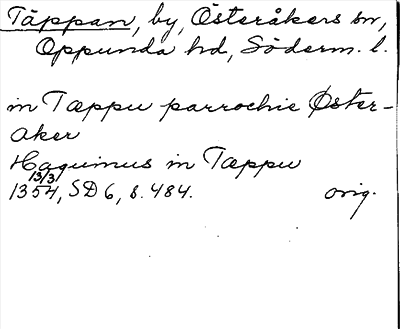 Täppan, by, Österåkers sn,
Oppunda hd, Söderm. l.
in Tæppu parrochie Øster-
aker
Haquinus in Tæppu
13/3
1354, SD 6, s. 484. orig.